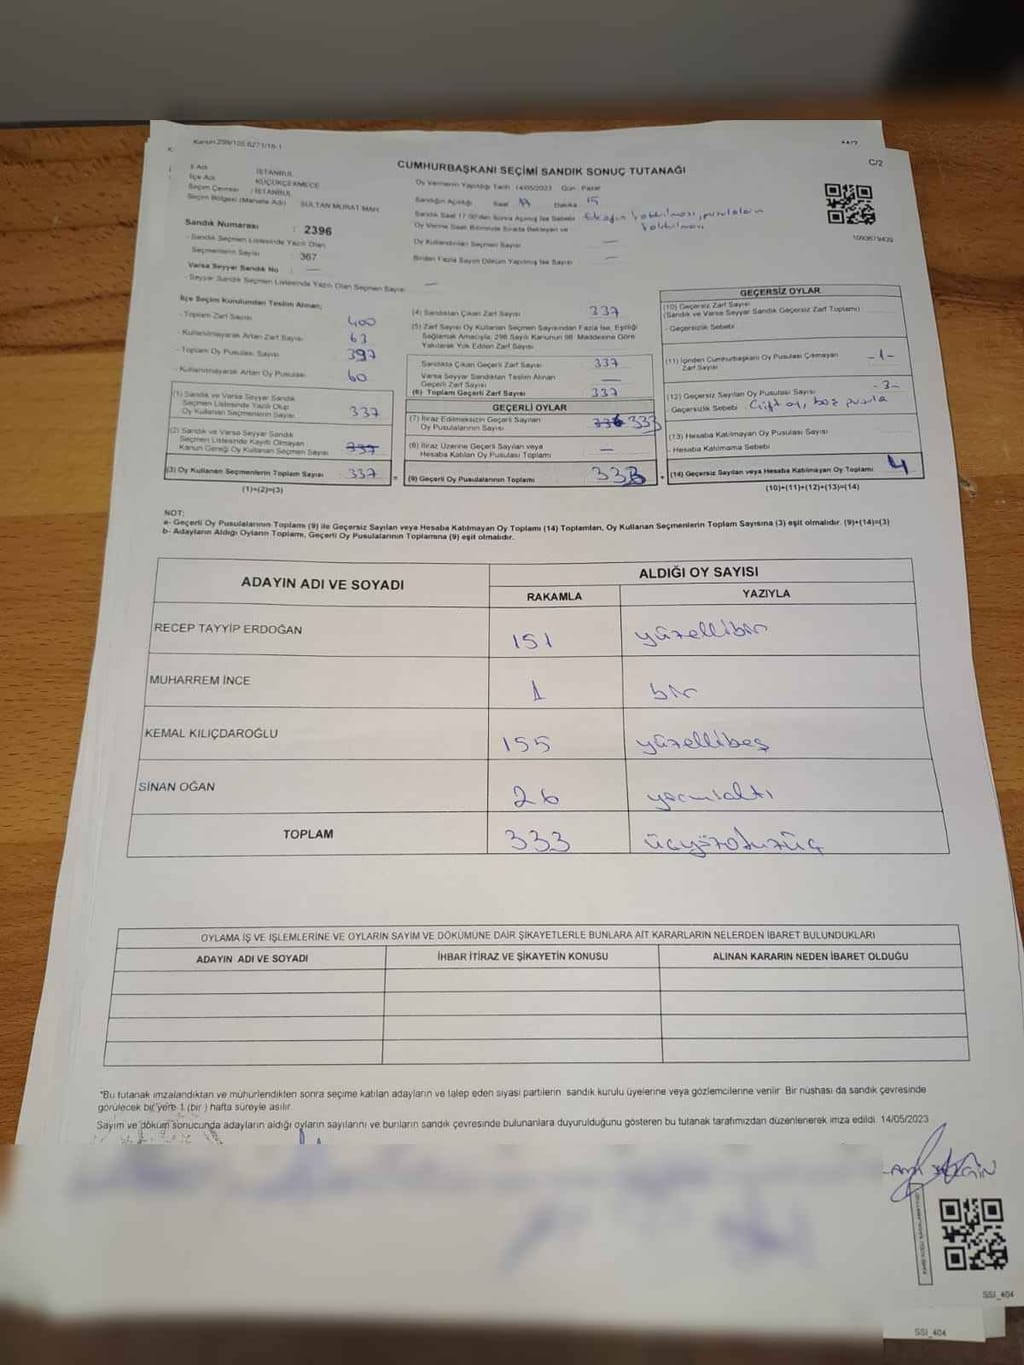 Kanun 298/105,6271/18-1
C/2
CUMHURBAŞKANI SEÇİMİ SANDIK SONUÇ TUTANAĞI
İl Adı : İSTANBUL
İlçe Adı : KÜÇÜKÇEKMECE
Seçim Çevresi : İSTANBUL
Seçim Bölgesi (Mahalle Adı) : SULTAN MURAT MAH.
Sandık Numarası : 2396
- Sandık Seçmen Listesinde Yazılı Olan
Seçmenlerin Sayısı : 367
Varsa Seyyar Sandık No : —
- Seyyar Sandık Seçmen Listesinde Yazılı Olan Seçmen Sayısı —
Oy Vermenin Yapıldığı Tarih 14/05/2023 Gün Pazar
Sandığın Açıldığı Saat 17 Dakika 15
Sandık Saat 17:00'den Sonra Açılmış İse Sebebi
Oy Verme Saati Bitiminde Sırada Bekleyen ve
Oy Kullandırılan Seçmen Sayısı —
Birden Fazla Sayım Döküm Yapılmış İse Sayısı —
1090879409
İlçe Seçim Kurulundan Teslim Alınan;
- Toplam Zarf Sayısı 400
- Kullanılmayarak Artan Zarf Sayısı 63
- Toplam Oy Pusulası Sayısı 397
- Kullanılmayarak Artan Oy Pusulası 60
(1) Sandık ve Varsa Seyyar Sandık
Seçmen Listesinde Yazılı Olup
Oy Kullanan Seçmenlerin Sayısı 337
(2) Sandık ve Varsa Seyyar Sandık
Seçmen Listesinde Kayıtlı Olmayan
Kanun Gereği Oy Kullanan Seçmen Sayısı 337
(3) Oy Kullanan Seçmenlerin Toplam Sayısı 337
(1)+(2)=(3)
(4) Sandıktan Çıkan Zarf Sayısı 337
(5) Zarf Sayısı Oy Kullanan Seçmen Sayısından Fazla İse, Eşitliği
Sağlamak Amacıyla, 298 Sayılı Kanunun 98. Maddesine Göre
Yakılarak Yok Edilen Zarf Sayısı
Sandıkta Çıkan Geçerli Zarf Sayısı 337
Varsa Seyyar Sandıktan Teslim Alınan
Geçerli Zarf Sayısı —
(6) Toplam Geçerli Zarf Sayısı 337
GEÇERLİ OYLAR
(7) İtiraz Edilmeksizin Geçerli Sayılan
Oy Pusulalarının Sayısı 336 333
(8) İtiraz Üzerine Geçerli Sayılan veya
Hesaba Katılan Oy Pusulası Toplamı —
= (9) Geçerli Oy Pusulalarının Toplamı 333
GEÇERSİZ OYLAR
(10) Geçersiz Zarf Sayısı
(Sandık ve Varsa Seyyar Sandık Geçersiz Zarf Toplamı)
- Geçersizlik Sebebi
(11) İçinden Cumhurbaşkanı Oy Pusulası Çıkmayan
Zarf Sayısı -1-
(12) Geçersiz Sayılan Oy Pusulası Sayısı -3-
- Geçersizlik Sebebi Çift oy, boş pusula
(13) Hesaba Katılmayan Oy Pusulası Sayısı
- Hesaba Katılmama Sebebi
+ (14) Geçersiz Sayılan veya Hesaba Katılmayan Oy Toplamı 4
(10)+(11)+(12)+(13)=(14)
NOT:
a- Geçerli Oy Pusulalarının Toplamı (9) ile Geçersiz Sayılan veya Hesaba Katılmayan Oy Toplamı (14) Toplamları, Oy Kullanan Seçmenlerin Toplam Sayısına (3) eşit olmalıdır. (9)+(14)=(3)
b- Adayların Aldığı Oyların Toplamı, Geçerli Oy Pusulalarının Toplamına (9) eşit olmalıdır.
ADAYIN ADI VE SOYADI
ALDIĞI OY SAYISI
RAKAMLA YAZIYLA
RECEP TAYYİP ERDOĞAN 151 yüzellibir
MUHARREM İNCE 1 bir
KEMAL KILIÇDAROĞLU 155 yüzellibeş
SİNAN OĞAN 26 yirmialtı
TOPLAM 333 üçyüzotuzüç
OYLAMA İŞ VE İŞLEMLERİNE VE OYLARIN SAYIM VE DÖKÜMÜNE DAİR ŞİKAYETLERLE BUNLARA AİT KARARLARIN NELERDEN İBARET BULUNDUKLARI
ADAYIN ADI VE SOYADI İHBAR İTİRAZ VE ŞİKAYETİN KONUSU ALINAN KARARIN NEDEN İBARET OLDUĞU
*Bu tutanak imzalandıktan ve mühürlendikten sonra seçime katılan adayların ve talep eden siyasi partilerin sandık kurulu üyelerine veya gözlemcilerine verilir. Bir nüshası da sandık çevresinde
görülecek bir yere 1 (bir) hafta süreyle asılır.
Sayım ve döküm sonucunda adayların aldığı oyların sayılarını ve bunların sandık çevresinde bulunanlara duyurulduğunu gösteren bu tutanak tarafımızdan düzenlenerek imza edildi. 14/05/2023
SSI_404
SSI_404